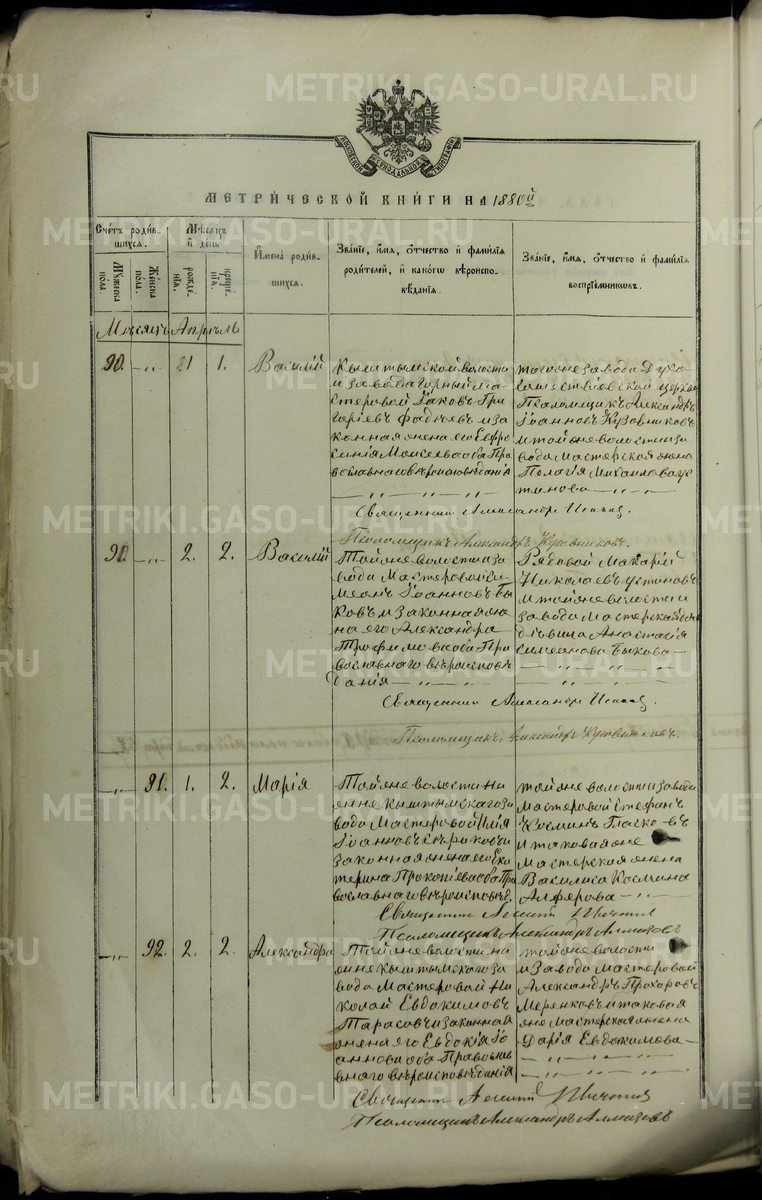 МЕТРИЧЕСКОЙ КНИГИ НА 1880й
Счетъ родив-
шихся.
Мѣсяцъ
и день
Мужеска
пола.
Женска
пола.
рожде-
нія.
креще-
нія.
Имена родив-
шихся.
Званіе, имя, отчество и фамилія
родителей, и какого вѣроиспо-
вѣданія.
Званіе, имя, отчество и фамилія
воспріемниковъ.
Мѣсяцъ Апрѣль
90. -„- 1 1. Василій
Кыштымской волости
и завода горный ма-
стеровой Іаковъ Гри
горіевъ Фадѣевъ и за
конная жена его Евфро
синія Моисеева оба Пра
вославнаго вѣроисповѣданія
тогоже завода Духо
сошествіевской церкви
Псаломщикъ Александръ
Іоанновъ Кузовниковъ
и тойже волости и за
вода мастерская жена
Пелагія Михаилова Ус
тинова
Священникъ Александръ
Псаломщикъ Александръ Кузовниковъ.
91. -„- 2. 2. Василій
Тойже волости и за
вода Мастеровой Си
меонъ Іоанновъ Бы
ковъ и законная же
на его Александра
Трофимова оба Пра
вославнаго вѣроисповѣ
данія
Рядовой Макарій
Николаевъ Устиновъ
и тойже волости и
завода мастерская дочь
дѣвица Анастасія
Симеонова Быкова
Священникъ Александръ
Псаломщикъ Александръ Кузовниковъ.
-„- 91. 1. 2. Марія
Тойже волости Ни
жне Кыштымскаго за
вода Мастеровой Илія
Іоанновъ и
законная жена его Ека
терина Прокопіева оба Пра
вославнаго вѣроисповѣд.
тойже волости и завода
Мастеровой Стефанъ
Косминъ
и таковая же
Мастерская жена
Василиса Космина
Алферова
Священникъ
Псаломщикъ Александръ Алмазовъ
-„- 92. 2. 2. Александра
Тойже волости Ни
жне Кыштымскаго за
вода Мастеровой Ни
колай Евдокимовъ
Тарасовъ и законная
жена его Евдокія Іо
аннова оба Православ
внаго вѣроисповѣданія
тойже волости
и Завода мастеровой
Александръ Прохоровъ
Меренковъ и таковая
же Мастерская жена
Дарія Евдокимова
Священникъ
Псаломщикъ Александръ Алмазовъ
METRIKI.GASO-URAL.RU